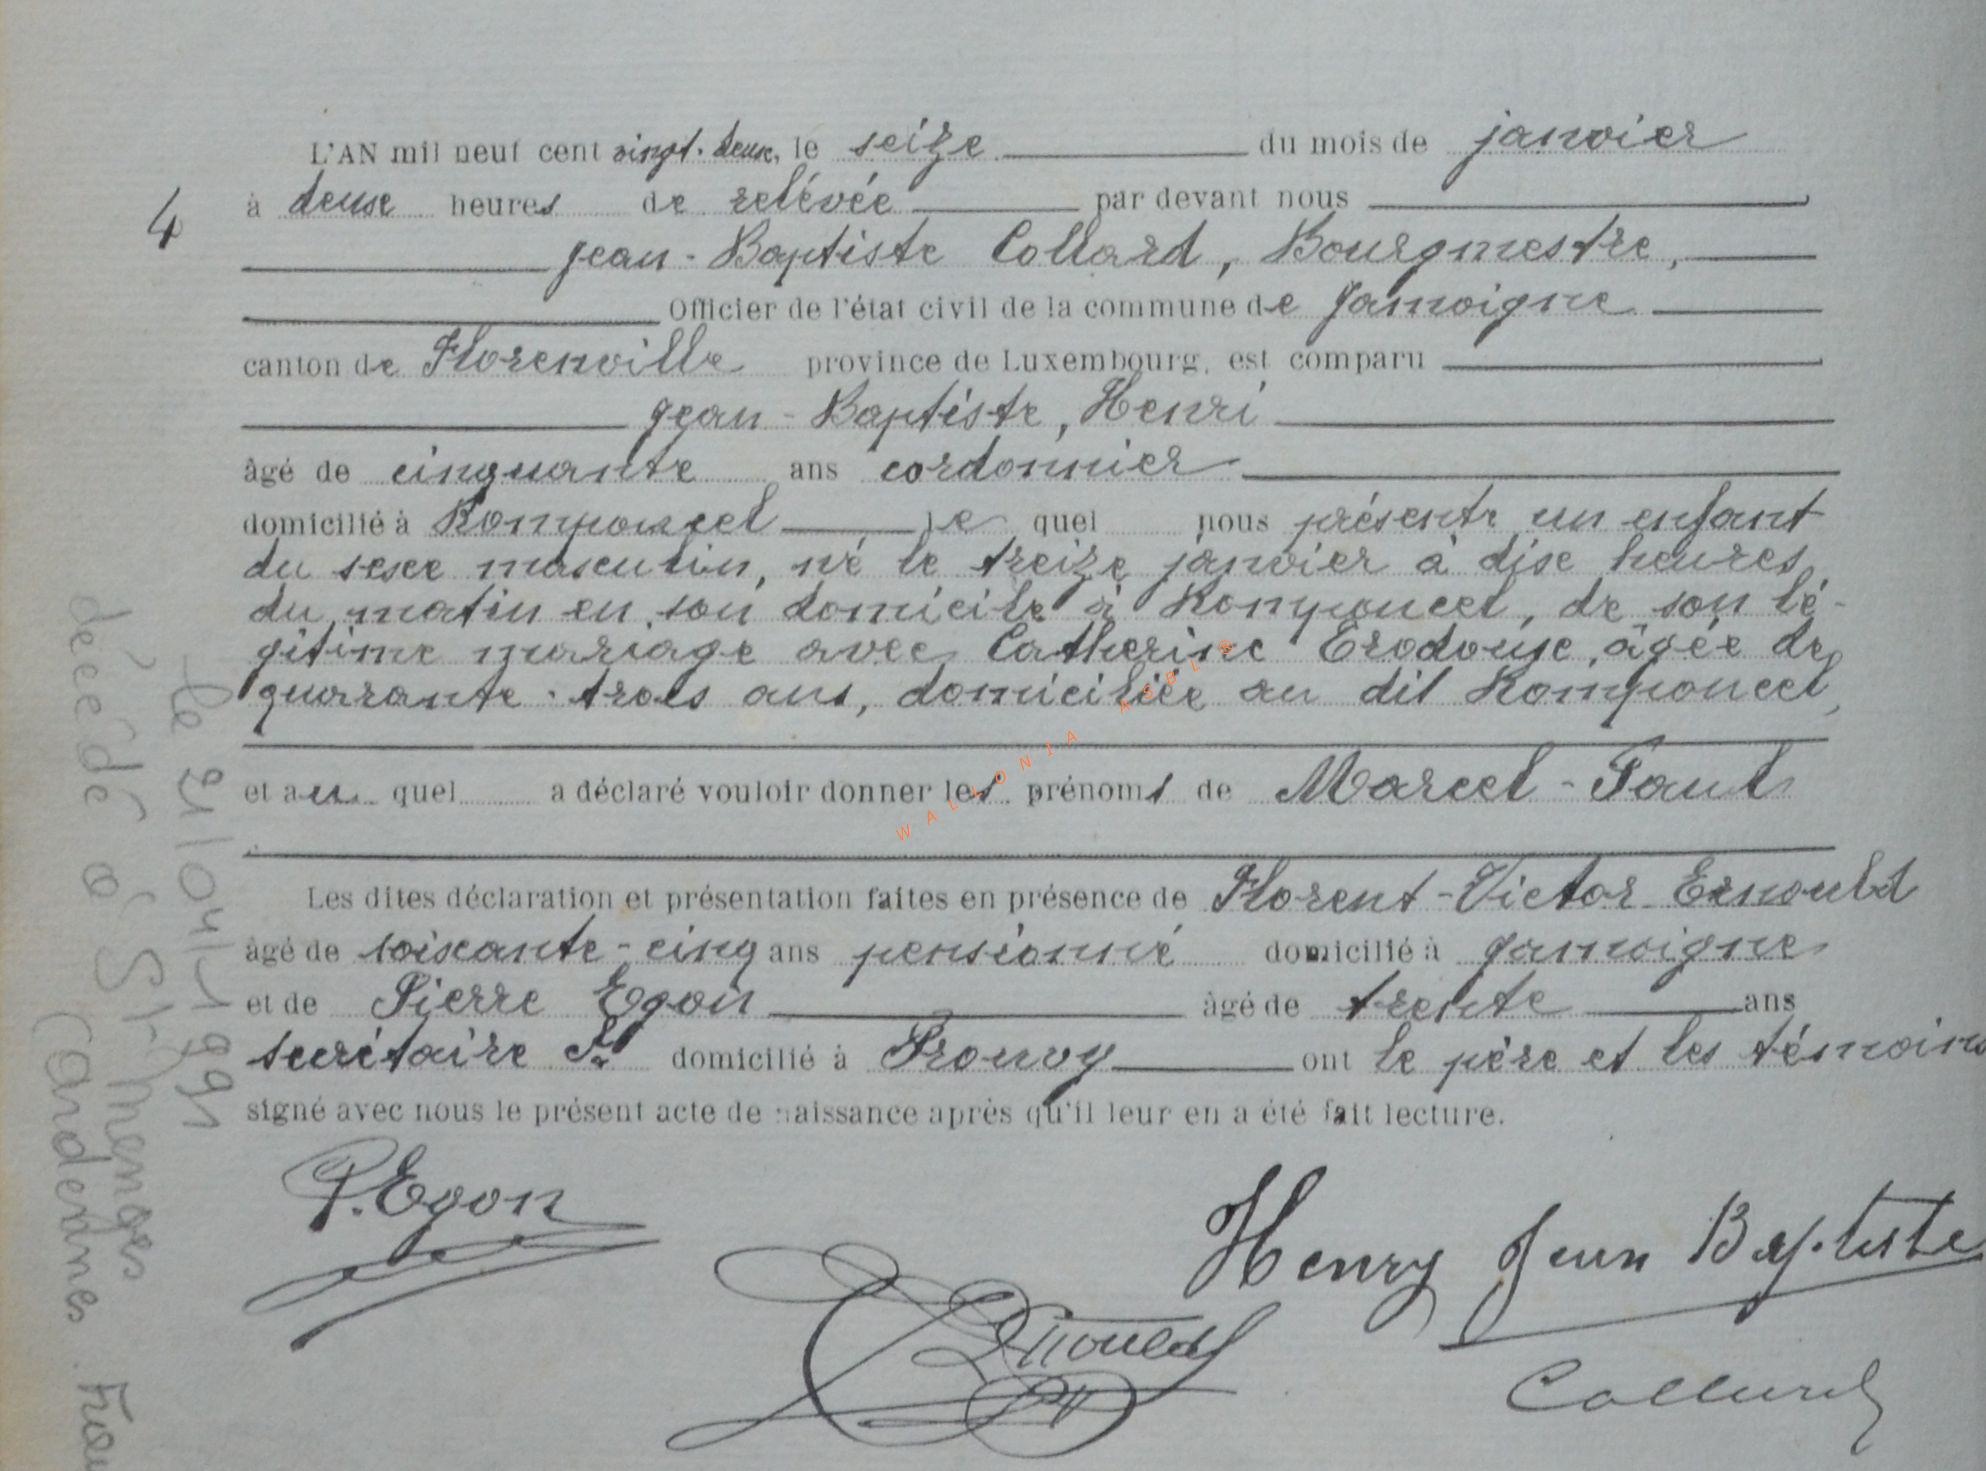 L'AN mil neuf cent vingt-deux, le seize du mois de janvier
4
à deux heures de relévée par devant nous
Jean-Baptiste Collard, Bourgmestre,
Officier de l'état civil de la commune de Jamoigne
canton de Florenville province de Luxembourg, est comparu
Jean-Baptiste, Henri
âgé de cinquante ans cordonnier
domicilié à Romponcel le quel nous présente un enfant
du sexe masculin, né le treize janvier à dix heures
du matin en son domicile à Romponcel, de son lé-
gitime mariage avec Catherine Erodouje, âgée de
quarante-trois ans, domiciliée au dit Romponcel,
et au quel a déclaré vouloir donner les prénoms de Marcel-Paul
Les dites déclaration et présentation faites en présence de Florent-Victor Ernould
âgé de soixante-cinq ans pensionné domicilié à Jamoigne
et de Pierre Egon âgé de trente ans
secrétaire Cl domicilié à Prouvy ont le père et les témoins
signé avec nous le présent acte de naissance après qu'il leur en a été fait lecture.
P. Egon
Henry Jean Baptiste
Ernould
Collard
décédé à St Menges
(Ardennes
le 21/04/1991
WALLONIA ASBL